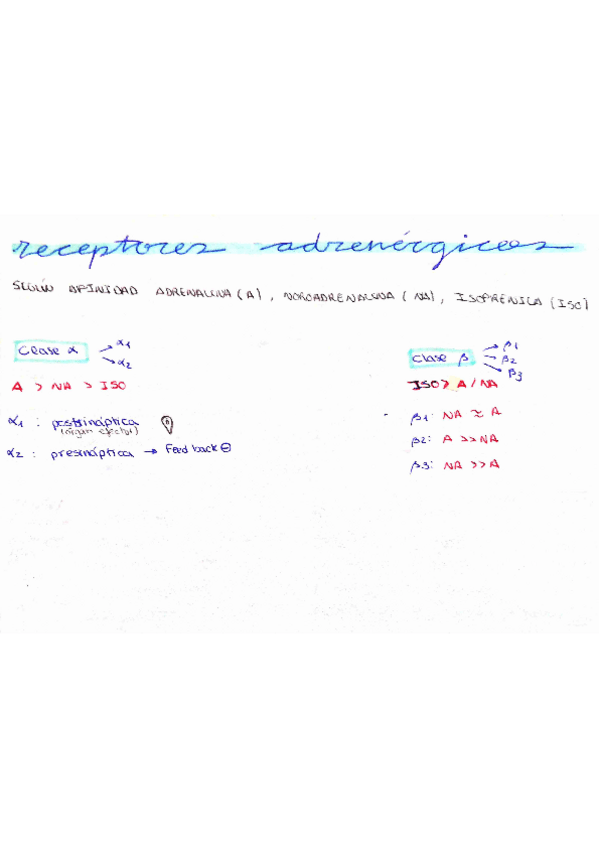 receptores adrenérgicos
SEGÚN AFINIDAD ADRENALINA (A), NORADRENALINA (NA), ISOPRENILA (ISO)
Clase α → α1
→ α2
A > NA > ISO
α1 : postsináptica
(órgano efector)
α2 : presináptica → Feedback ⊖
Clase β → β1
→ β2
→ β3
ISO > A / NA
β1: NA ≈ A
β2: A >> NA
β3: NA >> A